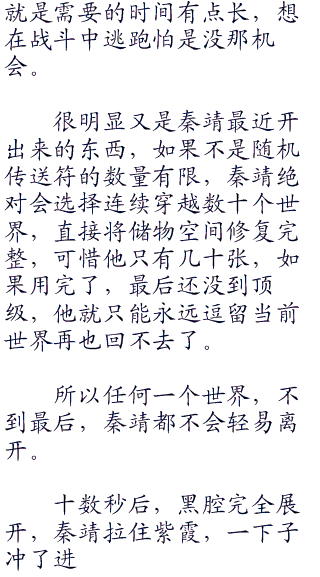 就是需要的时间有点长，想
在战斗中逃跑怕是没那机
会。
很明显又是秦靖最近开
出来的东西，如果不是随机
传送符的数量有限，秦靖绝
对会选择连续穿越数十个世
界，直接将储物空间修复完
整，可惜他只有几十张，如
果用完了，最后还没到顶
级，他就只能永远逗留当前
世界再也回不去了。
所以任何一个世界，不
到最后，秦靖都不会轻易离
开。
十数秒后，黑腔完全展
开，秦靖拉住紫霞，一下子
冲了进